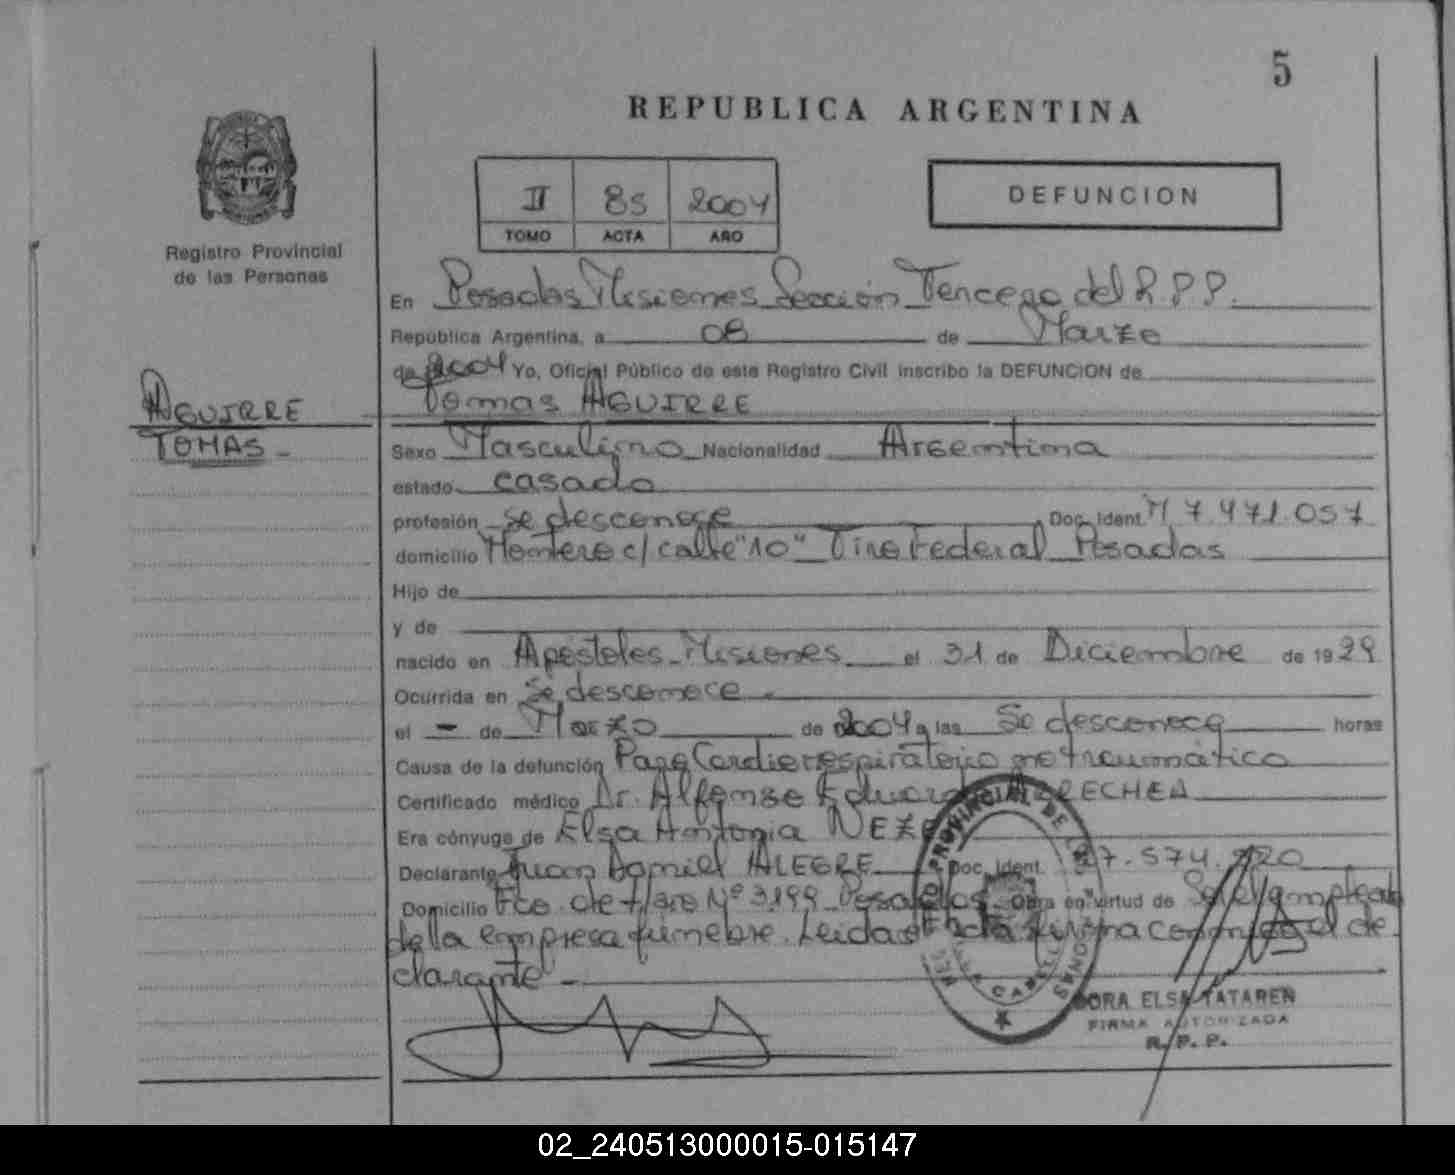 5
REPUBLICA ARGENTINA
II 85 2004
TOMO ACTA AÑO
DEFUNCION
Registro Provincial
de las Personas
En Posadas Misiones Sección Tercera del R.P.P.
República Argentina, a 08 de Marzo
de 2004 Yo, Oficial Público de este Registro Civil inscribo la DEFUNCION de
Tomas AGUIRRE
AGUIRRE
TOMAS -
Sexo Masculino Nacionalidad Argentina
estado casado
profesión se desconoce Doc. Ident. M 7.471.057
domicilio Montero c/ calle "10" Tiro Federal Posadas
Hijo de
y de
nacido en Apóstoles Misiones el 31 de Diciembre de 1929
Ocurrida en Se desconoce.
el - de Marzo de 2004 a las Se desconoce horas
Causa de la defunción Paro Cardiorespiratorio no traumático
Certificado médico Dr. Alfonso ARRECHEA
Era cónyuge de Elsa Antonia
Declarante Juan Daniel ALEGRE Doc. Ident. 7.574.
Domicilio Fco. de Haro Nº 3199 Posadas Obra en virtud de Ser empleado
de la empresa fúnebre. Leida el Acta firma conmigo el de
clarante -
PROVINCIAL DE
DORA ELSA TATAREN
FIRMA AUTORIZADA
R. P. P.
02_240513000015-015147